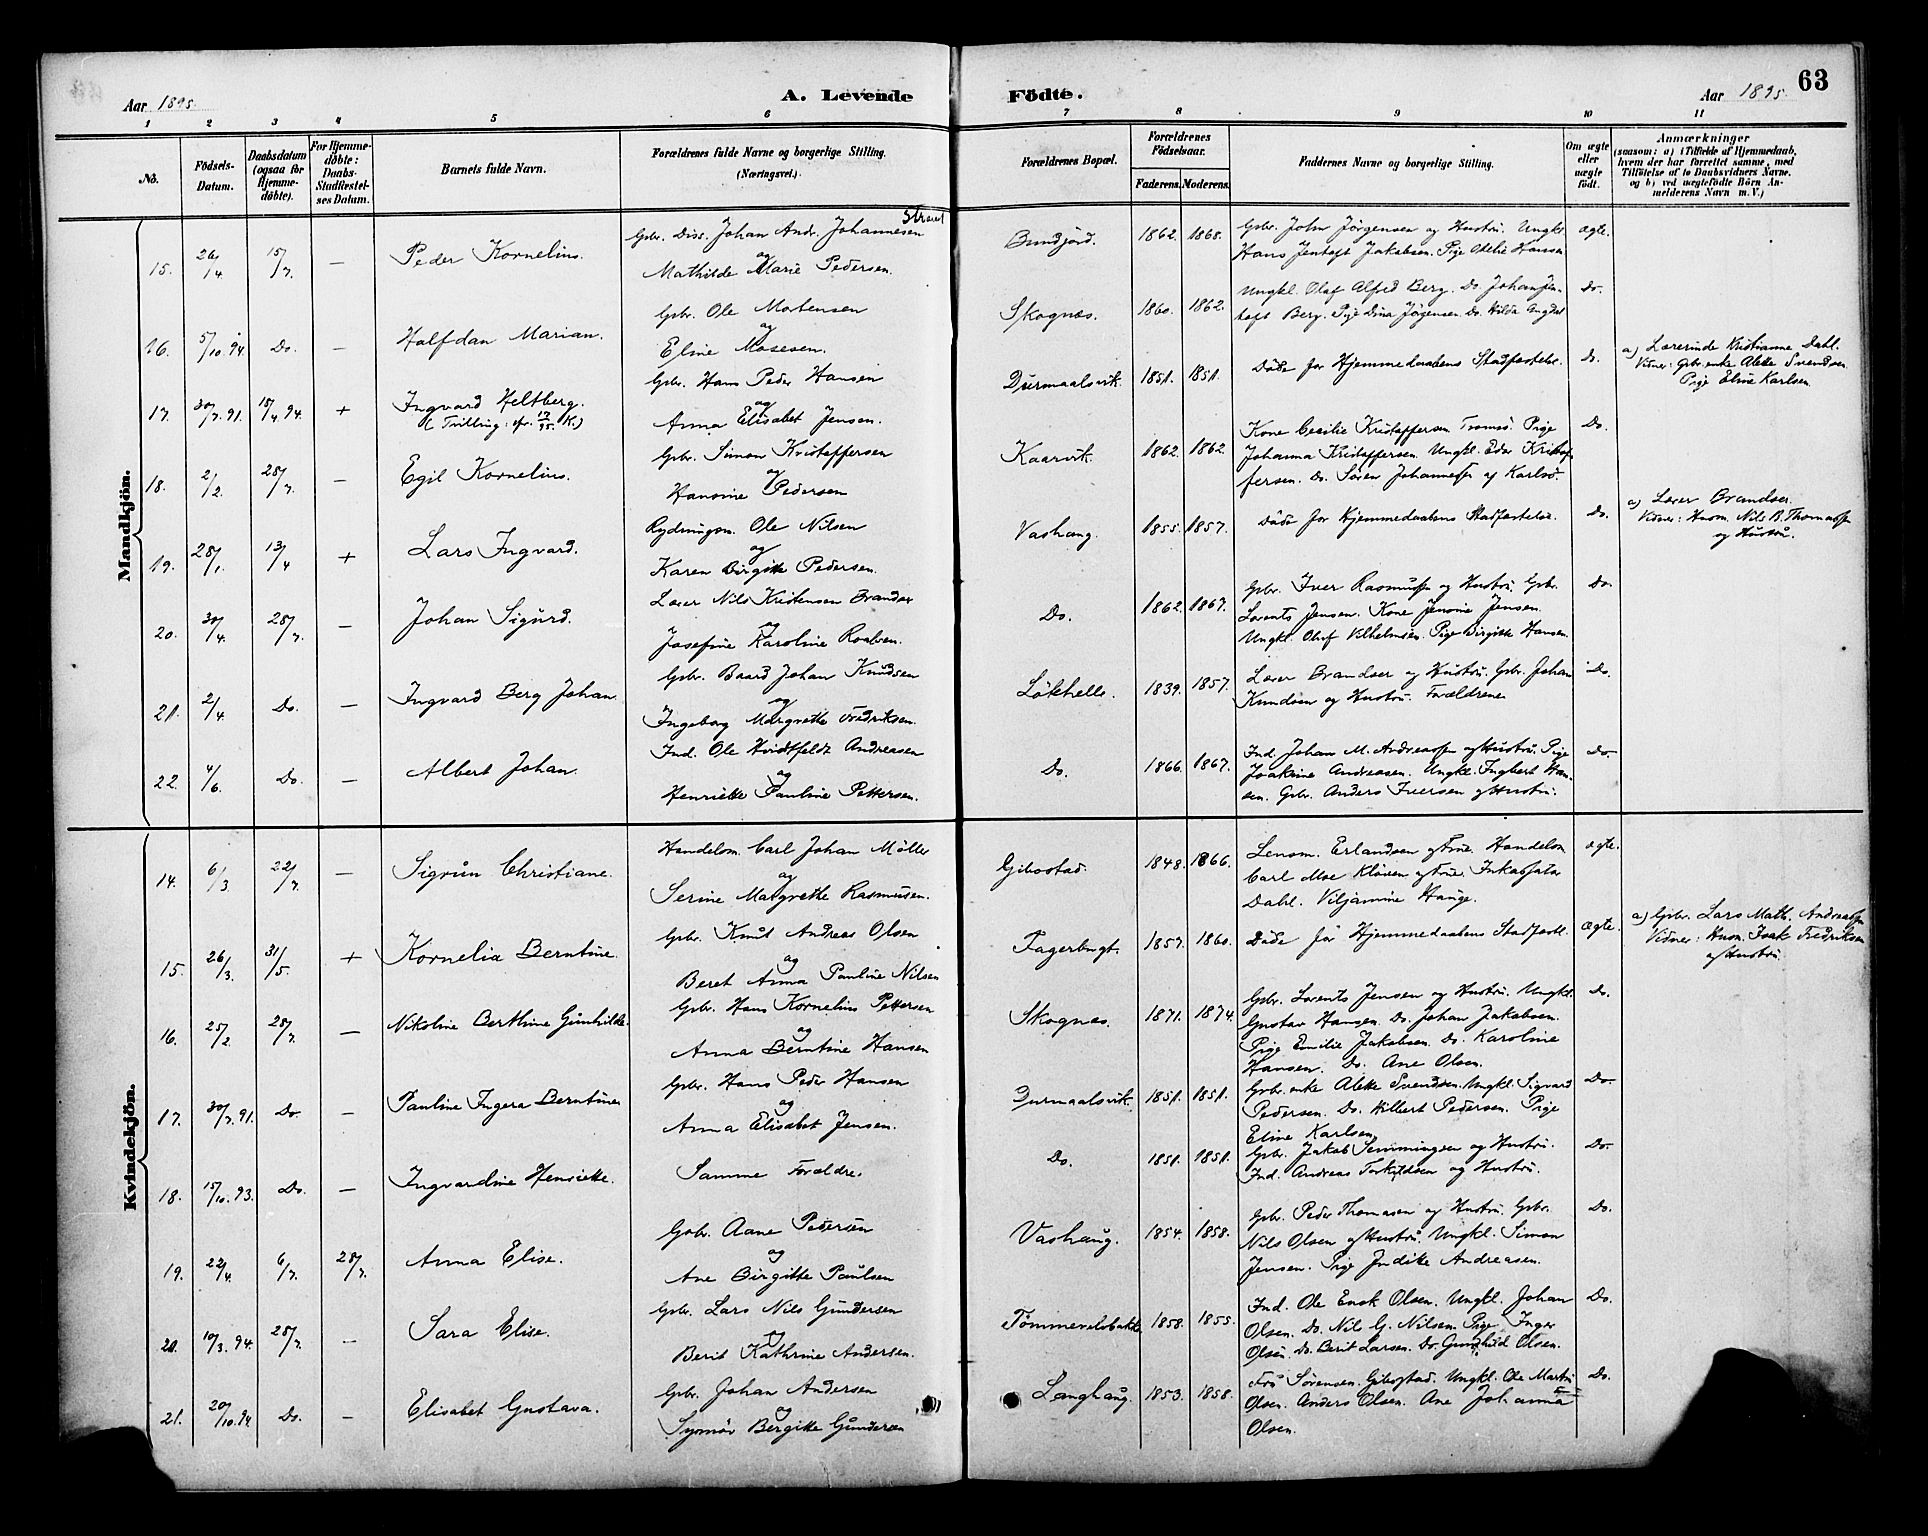 63
Aar 1895. A. Levende Födte. Aar 1895.
1 2 3 4 5 6 7 8 9 10 11
No. Födsels-Datum. Daabsdatum (ogsaa for Hjemme-döbte). For Hjemme-döbte: Daabs-Stadfæstel-ses Datum. Barnets fulde Navn. Forældrenes fulde Navne og borgerlige Stilling. (Næringsvei.) Forældrenes Bopæl. Forældrenes Födselsaar. Faderens. Moderens. Faddernes Navne og borgerlige Stilling. Om ægte eller uægte födt. Anmærkninger (saasom: a) i Tilfælde af Hjemmedaab, hvem der har forrettet samme, med Tilföielse af to Daabsvidners Navne, og b) ved uægtefödte Börn Anmelderens Navn m. V.)
Mandkjön.
15. 26/4 15/7 — Peder Kornelius. Gbr. Diss. Johan Andr. Johannesen Strand
og
Mathilde Marie Pedersen. Bundjord. 1862. 1868. Gbr. John Jörgensen og Hustru. Ungkr.
Hans Jentoft Jakobsen. Pige Hansen ægte.
16. 5/10.94. Do. — Halfdan Marian. Gbr. Ole Mortensen
og
Eline Mosesen. Skognæs. 1860. 1862. Ungkl. Olaf Alfred Berg. Do. Johan Jen-
toft Berg. Pige Dina Jörgensen. Do. Hilda Do.
17. 30/7.91. 15/4.94. + Ingvard Heltberg.
(Trilling: cfr. 17/95. K.) Gbr. Hans Peder Hansen
og
Anna Elisabet Jensen. Durmaalsvik. 1851. 1851. Döde för Hjemmedaabens Stadfæstelse. Do. a) Lærerinde Kristianne Dahl.
Vidner: Gbr.enke Alette Svendsen
Pige Eline Karlsen.
18. 2/2. 28/7. — Egil Kornelius. Gbr. Simon Kristoffersen
og
Hansine Pedersen Kaarvik. 1862. 1862. Kone Cecilie Kristoffersen Tromsö. Pige
Johanna Kristoffersen. Ungkl. Edor Kristof-
fersen. Do. Sören Johannessen af Karlsö. Do.
19. 28/1. 13/4 + Lars Ingvard. Rydningsm. Ole Nilsen
og
Karen Birgitte Pedersen. Vashaug. 1855. 1857. Döde för Hjemmedaabens Stadfæstelse. Do. a) Lærer Brandser.
Vidner: Husm. Nils B. Thomassen
og Hustru.
20. 30/4. 28/7. — Johan Sigurd. Lærer Nils Kristensen Brandser
og
Josefine Karoline Roalsen. Do. 1862. 1867. Gbr. Iver Rasmussen og Hustru. Gbr.
Lorents Jensen. Kone Jensine Jensen.
Ungkl. Oluf Vilhelmsen. Pige Birgitte Hansen. Do.
21. 2/4. Do. — Ingvard Berg Johan Gbr. Baard Johan Knudsen
og
Ingeborg Margrethe Fredriksen. Lökhelle. 1839. 1857. Lærer Brandser og Hustru. Gbr. Johan
Knudsen og Hustru. Forældrene Do.
22. 4/6. Do. — Albert Johan. Ind. Ole Hvidtfeldt Andreasen
og
Henriette Pauline Pettersen. Do. 1866. 1867. Ind. Johan M. Andreassen og Hustru. Pige
Joakime Andreasen. Ungkl. Ingbert Han-
sen. Gbr. Anders Iversen og Hustru. Do.
Kvindekjön.
14. 6/3. 22/7. — Sigrun Christiane. Handelsm. Carl Johan Möller
og
Serine Margrethe Rasmusen. Gibostad. 1848. 1866. Lensm. Erlandsen og Frue. Handelsm
Carl Moe Klöven og Frue. Inkassator
Dahl. Viljamine Hauge. ægte.
15. 26/3. 31/5. + Kornelia Berntine. Gbr. Knut Andreas Olsen
og
Beret Anna Pauline Nilsen Fagerbugt. 1857. 1860. Döde för Hjemmedaabens Stadfæst. Ægte. a) Gbr. Lars Math. Andreassen
Vidner: Husm. Isak Fredriksen
og Hustru.
16. 25/2. 28/7. — Nikoline Berthine Gunhilde. Gbr. Hans Kornelius Pettersen
og
Anna Berntine Hansen Skognæs. 1871. 1874. Gbr. Lorents Jensen og Hustru. Ungkl.
Gustav Hansen. Do. Johan Jakobsen.
Pige Emilie Jakobsen. Do. Karoline
Hansen. Do. Ane Olsen. Do.
17. 30/7.91. Do. — Pauline Ingera Berntine Gbr. Hans Peder Hansen
og
Anna Elisabet Jensen. Durmaalsvik. 1851. 1851. Gbr.enke Alette Svendsen. Ungkl. Sigvard
Pedersen. Do. Hilbert Pedersen. Pige
Eline Karlsen Do.
18. 15/10.93. Do. — Ingvardine Henriette. Samme Forældre. Do. 1851. 1851. Gbr. Jakob Semmingsen og Hustru.
Ind. Andreas Torkildsen og Hustru. Do.
19. 22/4. 6/7. 28/7. Anna Elise. Gbr. Aane Pedersen
og
Ane Birgitte Paulsen Vashaug. 1854. 1858. Gbr. Peder Thomasen og Hustru. Gbr.
Nils Olsen og Hustru. Ungkl. Simon
Jensen. Pige Indike Andreasen. Do.
20. 10/3.94. 28/7. — Sara Elise. Gbr. Lars Nils Gundersen
og
Berit Kathrine Andersen. Tömmervelsbakke 1858. 1855. Ind. Ole Enok Olsen. Ungkl. Johan
Olsen. Do. Nil G. Nilsen. Pige Inger
Olsen. Do. Berit Larsen. Do. Gunhild Olsen. Do.
21. 20/10.94 Do. — Elisabet Gustava. Gbr. Johan Andersen
og
Synnöv Bergitte Gundersen Langhaug. 1853. 1858. Frö Sörensen. Gibostad. Ungkl. Ole Martin
Olsen. Anders Olsen. Ane Johanna
Olsen. Do.